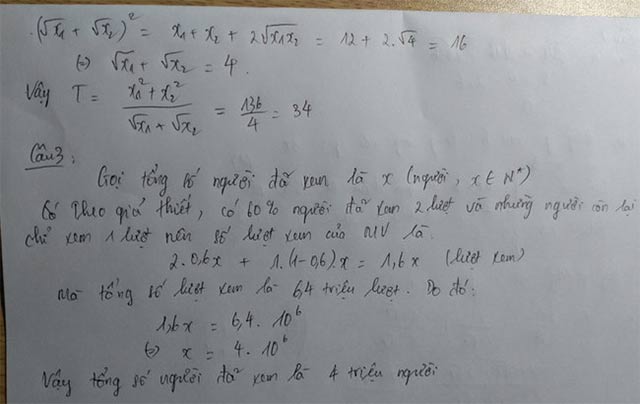 . (√x₁ + √x₂)² = x₁ + x₂ + 2√x₁x₂ = 12 + 2.√4 = 16
(=) √x₁ + √x₂ = 4.
Vậy T = (x₁² + x₂²)/(√x₁ + √x₂) = 136/4 = 34
Câu 3:
Gọi tổng số người đã xem là x (người, x ∈ N*)
Có theo giả thiết, có 60% người đã xem 2 lượt và những người còn lại
chỉ xem 1 lượt nên số lượt xem của MV là.
2. 0,6x + 1.(1-0,6).x = 1,6x (lượt xem)
Mà tổng số lượt xem là 6,4 triệu lượt. Do đó:
1,6x = 6,4. 10⁶
(=) x = 4. 10⁶
Vậy tổng số người đã xem là 4 triệu người